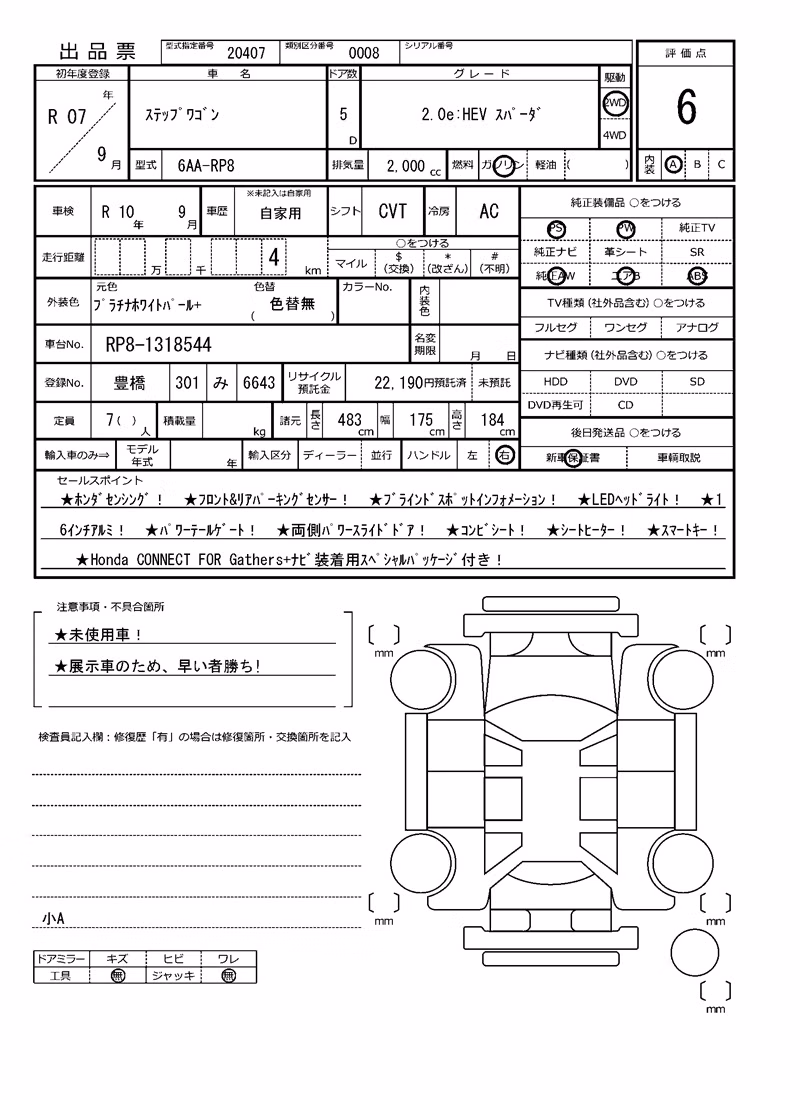 出品票 型式指定番号 20407 類別区分番号 0008 シリアル番号
評価点
初年度登録 車名 ドア数 グレード 駆動
R 07 年 9 月 ｽﾃｯﾌﾟﾜｺﾞﾝ 5 D 2.0e:HEV ｽﾊﾟｰﾀﾞ 2WD 4WD
6
型式 6AA-RP8 排気量 2,000 cc 燃料 ガソリン 軽油 ( )
内装 A B C
車検 R 10 年 9 月 車歴 ※未記入は自家用 自家用 シフト CVT 冷房 AC
走行距離 万 千 4 km ○をつける マイル $(交換) *(改ざん) #(不明)
外装色 元色 ﾌﾟﾗﾁﾅﾎﾜｲﾄﾊﾟｰﾙ+ 色替 ( 色替無 ) カラーNo. 内装色
車台No. RP8-1318544 名変期限 月 日
登録No. 豊橋 301 み 6643 リサイクル預託金 22,190円預託済 未預託
定員 7( )人 積載量 kg 諸元 長さ 483cm 幅 175cm 高さ 184cm
輸入車のみ⇒ モデル年式 年 輸入区分 ディーラー 並行 ハンドル 左 右
純正装備品 ○をつける
PS PW 純正TV
純正ナビ 革シート SR
純正AW エアB ABS
TV種類(社外品含む)○をつける
フルセグ ワンセグ アナログ
ナビ種類(社外品含む)○をつける
HDD DVD SD
DVD再生可 CD
後日発送品 ○をつける
新車保証書 車輌取説
セールスポイント
★ﾎﾝﾀﾞｾﾝｼﾝｸﾞ! ★ﾌﾛﾝﾄ&ﾘｱﾊﾟｰｷﾝｸﾞｾﾝｻｰ! ★ﾌﾞﾗｲﾝﾄﾞｽﾎﾟｯﾄｲﾝﾌｫﾒｰｼｮﾝ! ★LEDﾍｯﾄﾞﾗｲﾄ! ★1
6ｲﾝﾁｱﾙﾐ! ★ﾊﾟﾜｰﾃｰﾙｹﾞｰﾄ! ★両側ﾊﾟﾜｰｽﾗｲﾄﾞﾄﾞｱ! ★ｺﾝﾋﾞｼｰﾄ! ★ｼｰﾄﾋｰﾀｰ! ★ｽﾏｰﾄｷｰ!
★Honda CONNECT FOR Gathers+ﾅﾋﾞ装着用ｽﾍﾟｼｬﾙﾊﾟｯｹｰｼﾞ付き!
注意事項・不具合箇所
★未使用車!
★展示車のため、早い者勝ち!
検査員記入欄：修復歴「有」の場合は修復箇所・交換箇所を記入
小A
ドアミラー キズ ヒビ ワレ
工具 無 ジャッキ 無
mm mm
mm mm
mm